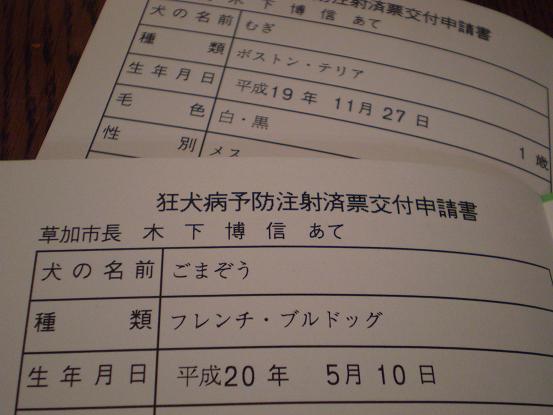 木下博信 あて
防注射済票交付申請書
犬の名前 むぎ
種類 ボストン・テリア
生年月日 平成19年 11月27日
毛色 白・黒
1歳
性別 メス
狂犬病予防注射済票交付申請書
草加市長 木下博信 あて
犬の名前 ごまぞう
種類 フレンチ・ブルドッグ
生年月日 平成20年 5月10日